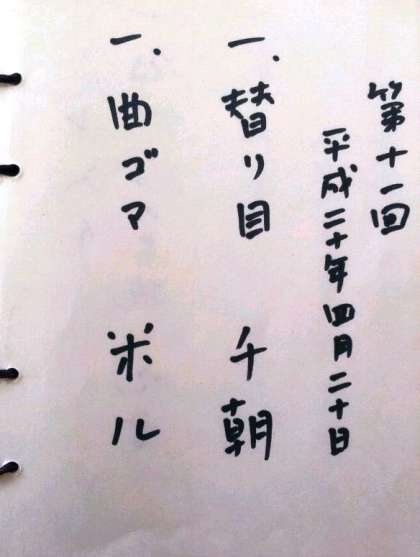 第十一回
平成二十年四月二十日
一、替り目 千朝
一、曲ゴマ 米ル